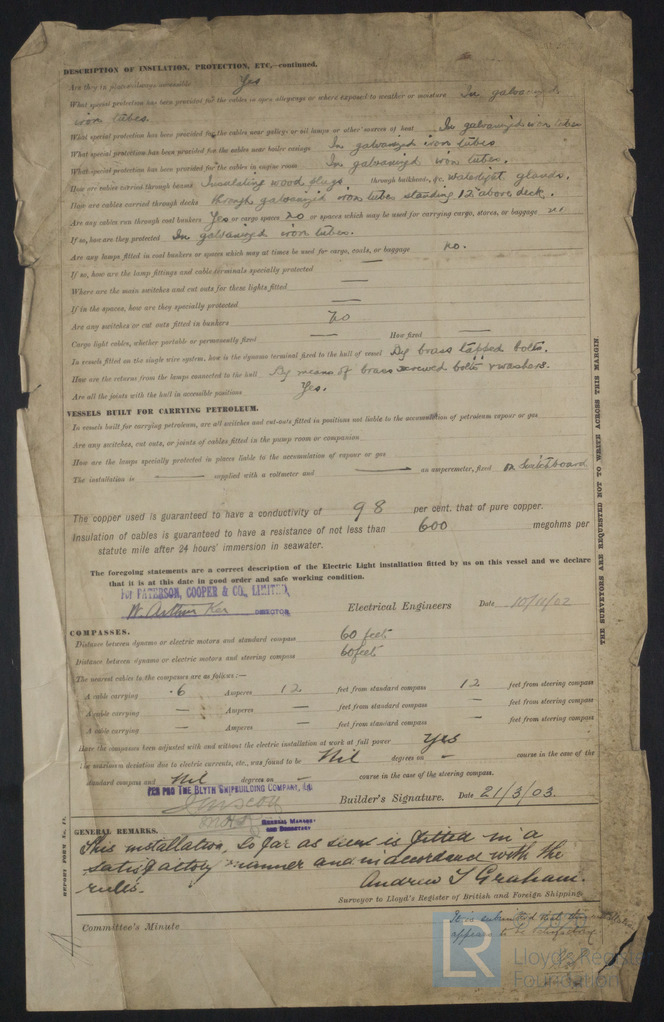 DESCRIPTION OF INSULATION, PROTECTION, ETC.—continued.
Are they in places always accessible Yes
What special protection has been provided for the cables in open alleyways or where exposed to weather or moisture In galvanized
iron tubes.
What special protection has been provided for the cables near galleys or oil lamps or other sources of heat In galvanized iron tubes
What special protection has been provided for the cables near boiler casings In galvanized iron tubes
What special protection has been provided for the cables in engine room In galvanized iron tubes.
How are cables carried through beams Insulating wood plugs through bulkheads, &c. Watertight glands.
How are cables carried through decks through galvanized iron tubes standing 12" above deck.
Are any cables run through coal bunkers Yes or cargo spaces no or spaces which may be used for carrying cargo, stores, or baggage
If so, how are they protected In galvanized iron tubes.
Are any lamps fitted in coal bunkers or spaces which may at times be used for cargo, coals, or baggage no.
If so, how are the lamp fittings and cable terminals specially protected —
Where are the main switches and cut outs for these lights fitted —
If in the spaces, how are they specially protected —
Are any switches or cut outs fitted in bunkers no
Cargo light cables, whether portable or permanently fixed — How fixed —
In vessels fitted on the single wire system, how is the dynamo terminal fixed to the hull of vessel By brass tapped bolts.
How are the returns from the lamps connected to the hull By means of brass screwed bolts & washers.
Are all the joints with the hull in accessible positions Yes.
VESSELS BUILT FOR CARRYING PETROLEUM.
In vessels built for carrying petroleum, are all switches and cut-outs fitted in positions not liable to the accumulation of petroleum vapour or gas
Are any switches, cut outs, or joints of cables fitted in the pump room or companion
How are the lamps specially protected in places liable to the accumulation of vapour or gas
The installation is — supplied with a voltmeter and — an amperemeter, fixed on Switchboard
The copper used is guaranteed to have a conductivity of 98 per cent. that of pure copper.
Insulation of cables is guaranteed to have a resistance of not less than 600 megohms per
statute mile after 24 hours' immersion in seawater.
The foregoing statements are a correct description of the Electric Light installation fitted by us on this vessel and we declare
that it is at this date in good order and safe working condition.
For PATERSON, COOPER & CO., LIMITED,
W. Arthur Ker DIRECTOR Electrical Engineers Date 10/11/02
COMPASSES.
Distance between dynamo or electric motors and standard compass 60 feet
Distance between dynamo or electric motors and steering compass 60 feet
The nearest cables to the compasses are as follows:—
A cable carrying .6 Amperes 12 feet from standard compass 12 feet from steering compass
A cable carrying — Amperes — feet from standard compass — feet from steering compass
A cable carrying — Amperes — feet from standard compass — feet from steering compass
Have the compasses been adjusted with and without the electric installation at work at full power Yes
The maximum deviation due to electric currents, etc., was found to be Nil degrees on — course in the case of the
standard compass and Nil degrees on — course in the case of the steering compass.
PER PRO THE BLYTH SHIPBUILDING COMPANY, Ld.
Builder's Signature. Date 21/3/03.
GENERAL MANAGER
AND SECRETARY
GENERAL REMARKS.
This installation, so far as seen is fitted in a
satisfactory manner and in accordance with the
rules.
Andrew T Graham.
Surveyor to Lloyd's Register of British and Foreign Shipping.
Committee's Minute
It is submitted that this
appears to be satisfactory.
THE SURVEYORS ARE REQUESTED NOT TO WRITE ACROSS THIS MARGIN.
REPORT FORM No. 17.
LR
Lloyd's Register
Foundation